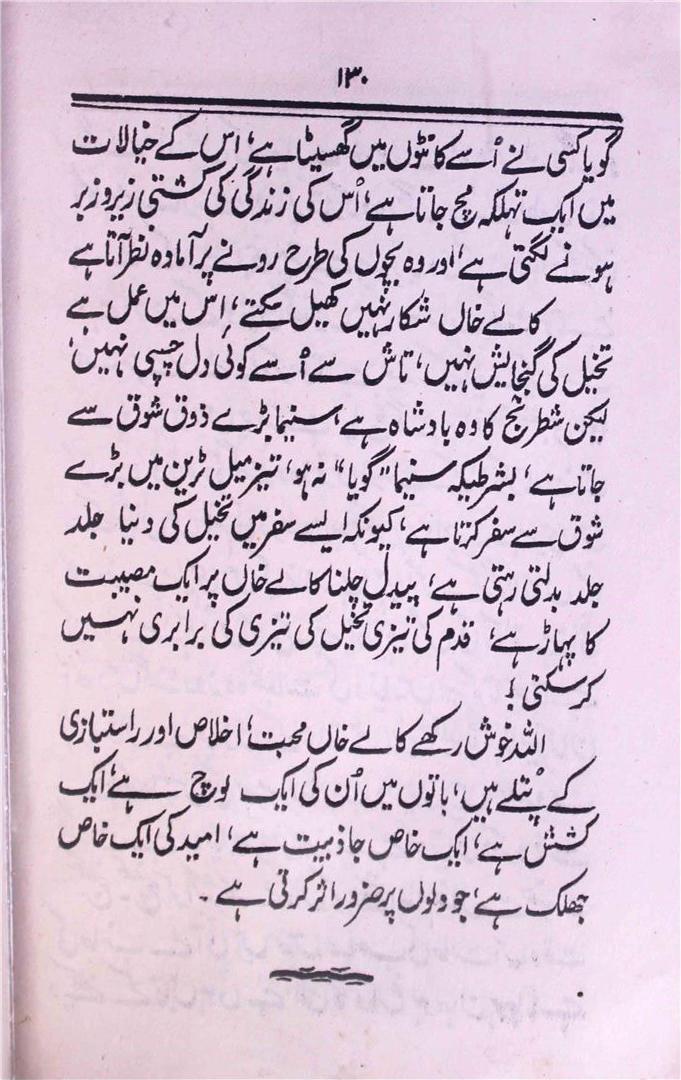 ۱۳۰
گویا کسی نے اُسے کانٹوں میں گھسیٹا ہے، اس کے خیالات
میں ایک تہلکہ مچ جاتا ہے، اُس کی زندگی کی کشتی زیر و زبر
ہونے لگتی ہے، اور وہ بچوں کی طرح رونے پر آمادہ نظر آتا ہے
کالے خاں شکار نہیں کھیل سکتے، اِس میں عمل ہے
تخیل کی گنجایش نہیں، تاش سے اُسے کوئی دل چسپی نہیں،
لیکن شطرنج کا وہ بادشاہ ہے، سنیما بڑے ذوق شوق سے
جاتا ہے، بشرطیکہ سنیما "گویا" نہ ہو، تیز میل ٹرین میں بڑے
شوق سے سفر کرتا ہے، کیونکہ ایسے سفر میں تخیل کی دنیا جلد
جلد بدلتی رہتی ہے، پیدل چلنا کالے خاں پر ایک مصیبت
کا پہاڑ ہے، قدم کی تیزی تخیل کی تیزی کی برابری نہیں
کر سکتی!
اللہ خوش رکھے کالے خاں محبت، اخلاص اور راستبازی
کے پُتلے ہیں، باتوں میں اُن کی ایک لوچ ہے، ایک
کشش ہے، ایک خاص جاذبیت ہے، امید کی ایک خاص
جھلک ہے، جو دلوں پر ضرور اثر کرتی ہے۔